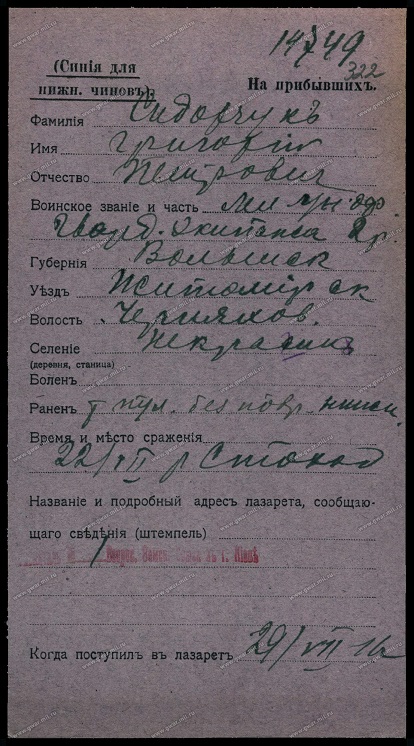 14749
322
(Синія для
нижн. чиновъ).
На прибывшихъ.
Фамилія Сидорчукъ
Имя Григорій
Отчество Петрович
Воинское званіе и часть
Гвард. Экипажа
Губернія Волынск
Уѣздъ Житомірск
Волость Черняхов.
Селеніе
(деревня, станица)
Боленъ
Раненъ пул. без повр.
Время и мѣсто сраженія
22/VII р Стоход
Названіе и подробный адресъ лазарета, сообщаю-
щаго свѣдѣнія (штемпель)
въ г. Кіевѣ
Когда поступилъ въ лазаретъ 29/VII 16